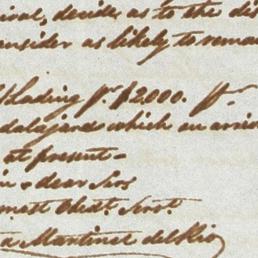 ival, decide as to the dis
onsider as likely to remai
Lading pr. $2,000. pr.
dalajara which on arriv
at present -
in & dear Sirs
most Obedt. Servt.
a Martinez del Rio